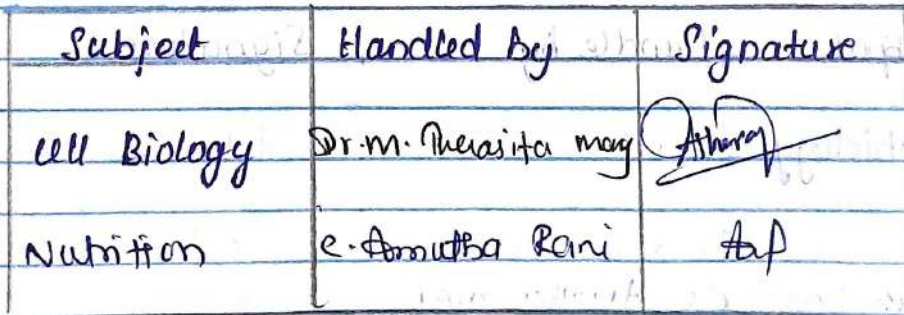 Subject Handled by Signature
Cell Biology Dr. M. Therasita mary
Nutrition C. Amutha Rani